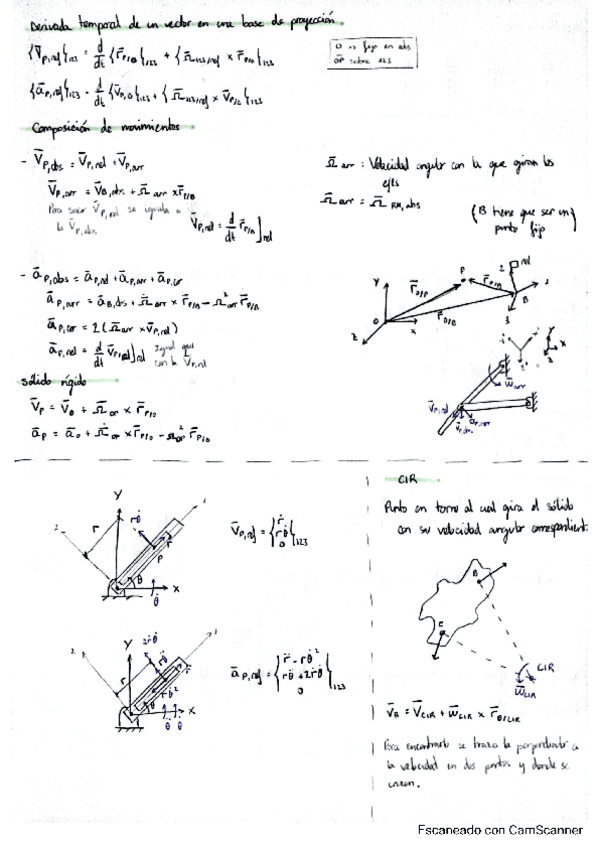 Derivada temporal de un vector en una base de proyección.
{V̄P,ref}123 = d/dt {r̄P/O}123 + {Ω̄123/ref × r̄P/O}123
O es fijo en abs
OP sobre 123
{āP,ref}123 = d/dt {V̄P,O}123 + {Ω̄123/ref × V̄P/O}123
Composición de movimientos
- V̄P,abs = V̄P,rel + V̄P,arr
V̄P,arr = V̄B,abs + Ω̄arr × r̄P/B
Para sacar V̄P,rel se iguala a
la V̄P,abs
V̄P,rel = d/dt r̄P/B]rel
Ω̄arr = Velocidad angular con la que giran los
ejes
Ω̄arr = Ω̄RM,abs
(B tiene que ser un)
punto fijo
- āP,abs = āP,rel + āP,arr + āP,cor
āP,arr = āB,abs + Ω̄̇arr × r̄P/B - Ω²arr r̄P/B
āP,cor = 2(Ω̄arr × V̄P,rel)
āP,rel = d/dt V̄P,rel]rel
Igual que
con la V̄P,rel
Y
O
X
Z
P
r̄O/P
r̄P/B
r̄O/B
B
rel
1
2
3
w̄arr
V̄P,rel
V̄P,abs
sólido rígido
V̄P = V̄B + Ω̄OP × r̄P/O
āP = āO + Ω̄̇OP × r̄P/O - Ω²OP r̄P/O
Y
r
rθ̇
ṙ
P
θ
X
θ̇
1
2
V̄P,ref = {ṙ
rθ̇
0}123
Y
2ṙθ̇
rθ̈
r̈
rθ̇²
r
θ
X
θ̇
θ̈
1
2
āP,ref = {r̈ - rθ̇²
rθ̈ + 2ṙθ̇
0}123
CIR
Punto en torno al cual gira el sólido
con su velocidad angular correspondient.
B
C
CIR
w̄CIR
V̄B = V̄CIR + w̄CIR × r̄B/CIR
Para encontrarlo se traza la perpendicular a
la velocidad en dos puntos y donde se
cruzan.
Escaneado con CamScanner